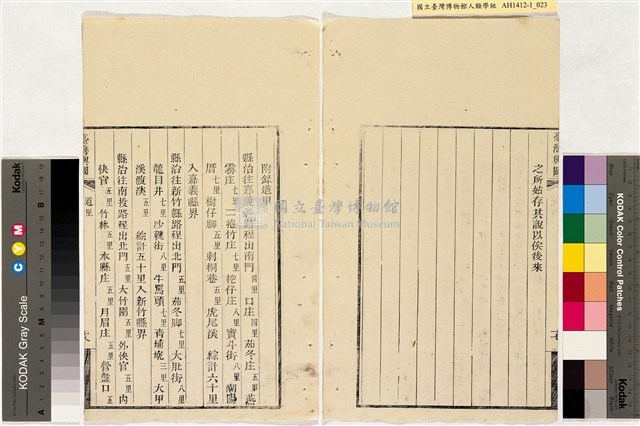 國立臺灣博物館人類學組 AH1412-1_023
臺灣輿圖
之所始存其說以俟後來
附錄道里
縣治往嘉義縣路程出南門 四里 口庄 四里 茄冬庄 五里 燕
霧庄 七里 二抱竹庄 七里 挖仔庄 八里 寶斗街 八里
厝 七里 樹仔腳 五里 刺桐巷 五里 虎尾溪 綜計六十里
入嘉義縣界
縣治往新竹縣路程出北門 五里 茄冬腳 七里 大肚街 八里
龍目井 七里 沙轆街 八里 牛罵頭 七里 青埔 三里 大甲
溪渡溪 五里 綜計五十里入新竹縣界
縣治往南投路程出北門 五里 大竹圍 五里 外快官 五里 內
快官 五里 竹林 五里 本縣庄 五里 月眉庄 五里 營盤口 五里
臺灣輿圖 道里
國立臺灣博物館
National Taiwan Museum
KODAK Gray Scale
Kodak
C Y M
A M B
KODAK Color Control Patches
Kodak